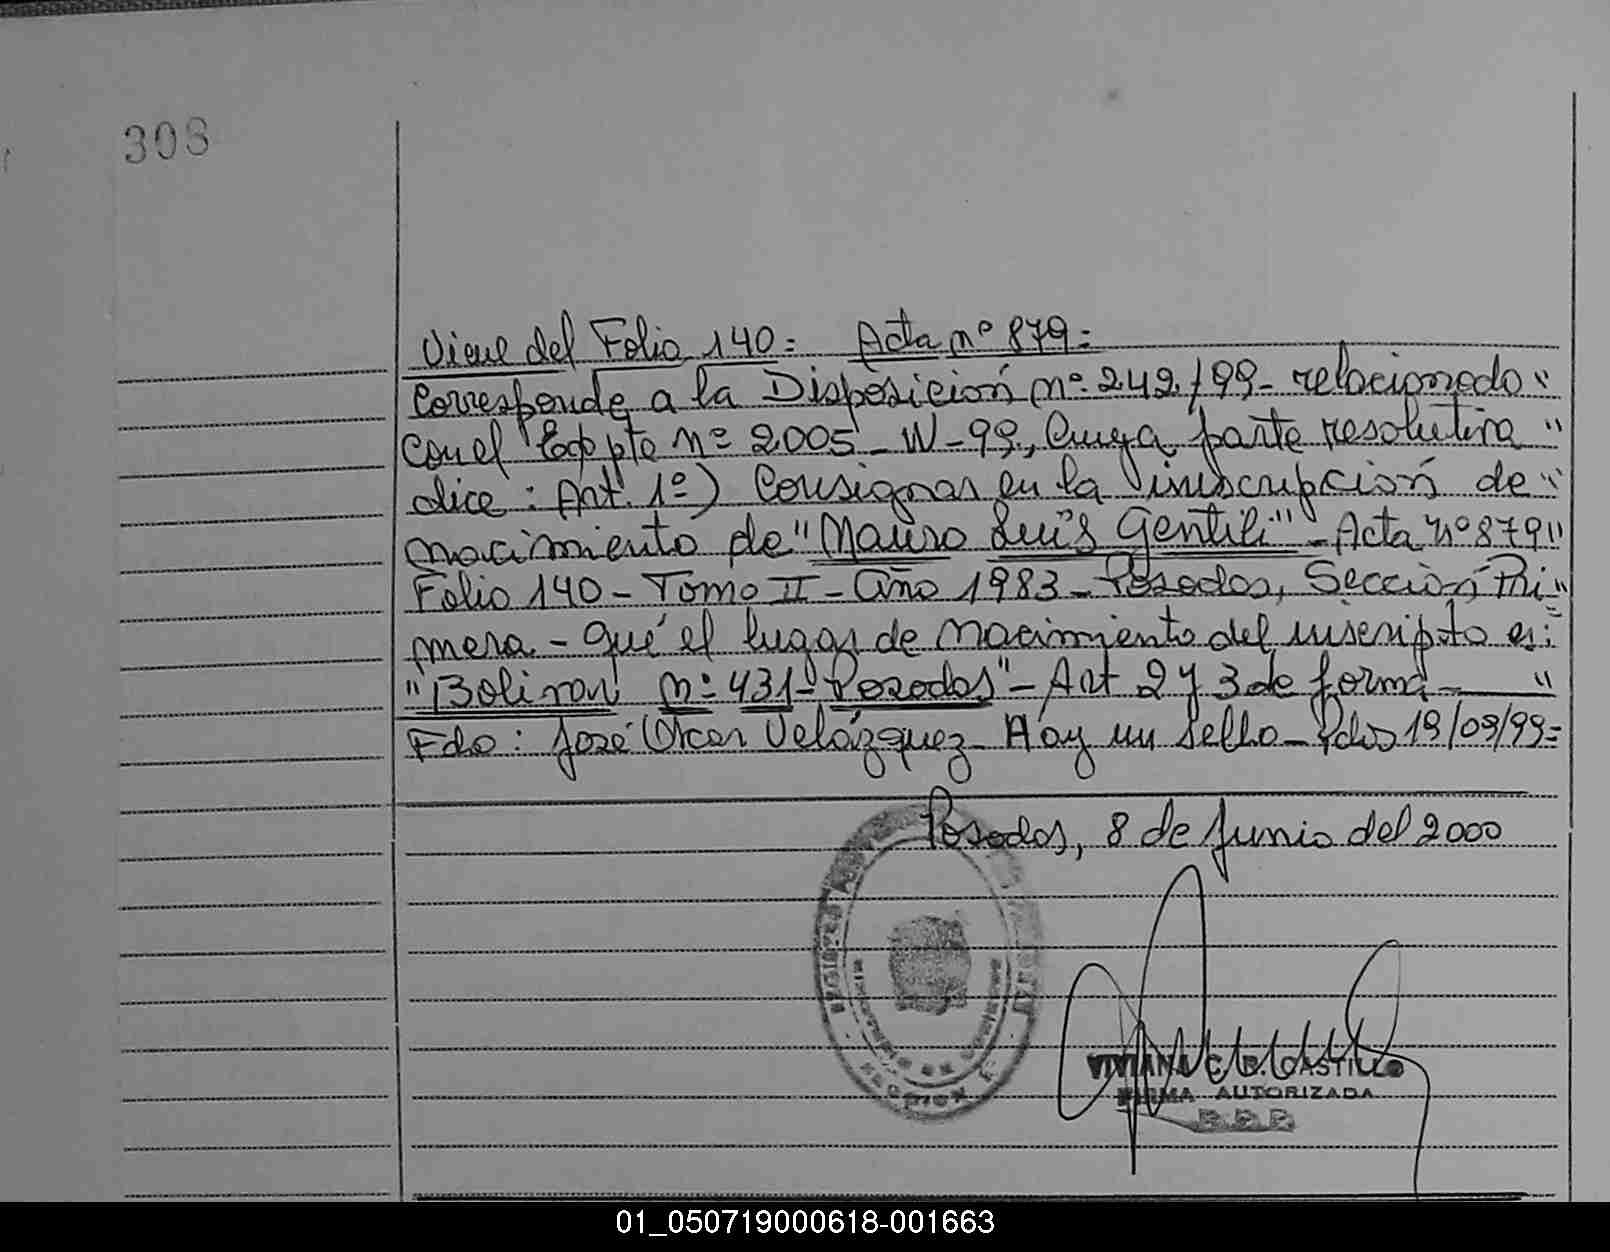 308
Viene del Folio 140= Acta nº 879=
Corresponde a la Disposición nº 242/99- relacionado"
con el Expte nº 2005-W-99, Cuya parte resolutiva"
dice: Art. 1º) Consignar en la inscripción de"
nacimiento de "Mauro Luis Gentili" - Acta nº 879"
Folio 140 - Tomo II - Año 1983 - Posadas, Sección Pri"
mera - que el lugar de nacimiento del inscripto es:
"Bolivar nº 431- Posadas" - Art 2 y 3 de forma - "
Fdo: José Oscar Velázquez - Hay un sello - Pdas 19/09/99=
Posadas, 8 de Junio del 2000
VIVIANA C. B. CASTILLO
FIRMA AUTORIZADA
01_050719000618-001663